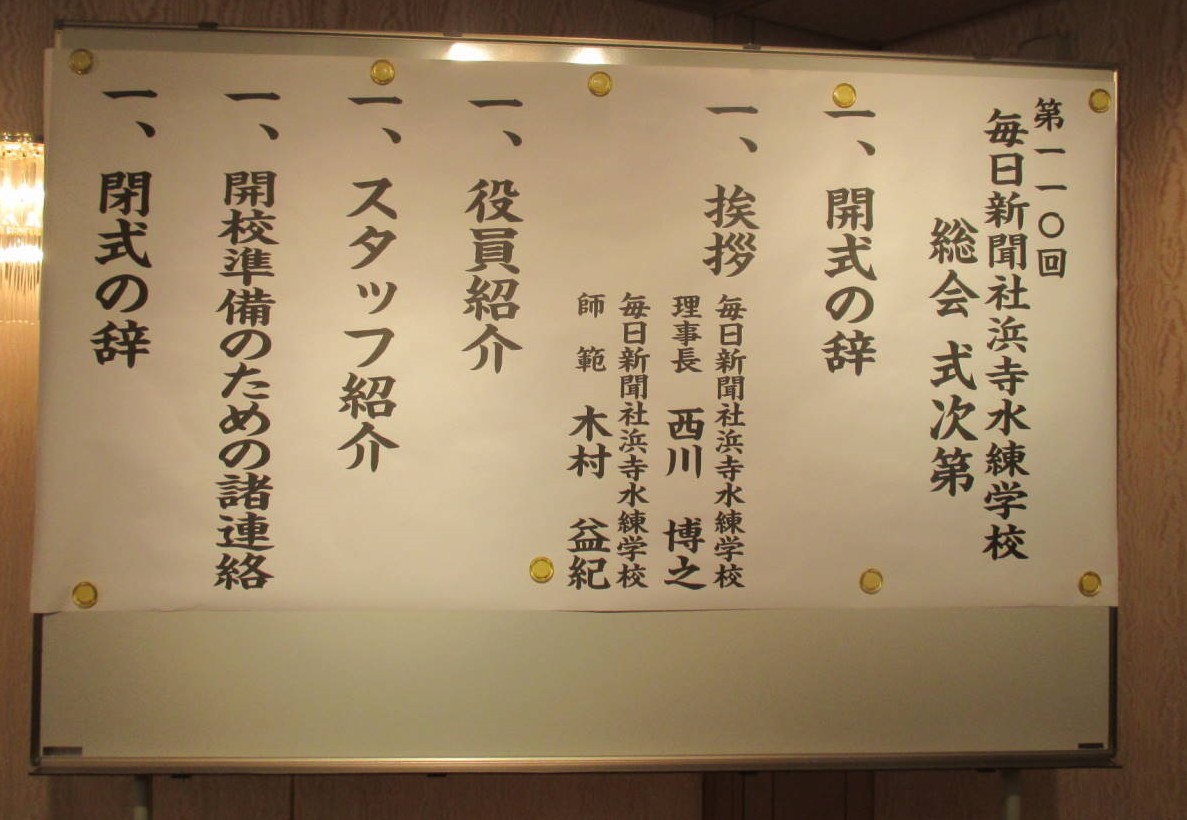 第一一〇回
毎日新聞社浜寺水練学校
総会 式次第
一、開式の辞
一、挨拶
毎日新聞社浜寺水練学校
理事長 西川 博之
毎日新聞社浜寺水練学校
師範 木村 益紀
一、役員紹介
一、スタッフ紹介
一、開校準備のための諸連絡
一、閉式の辞